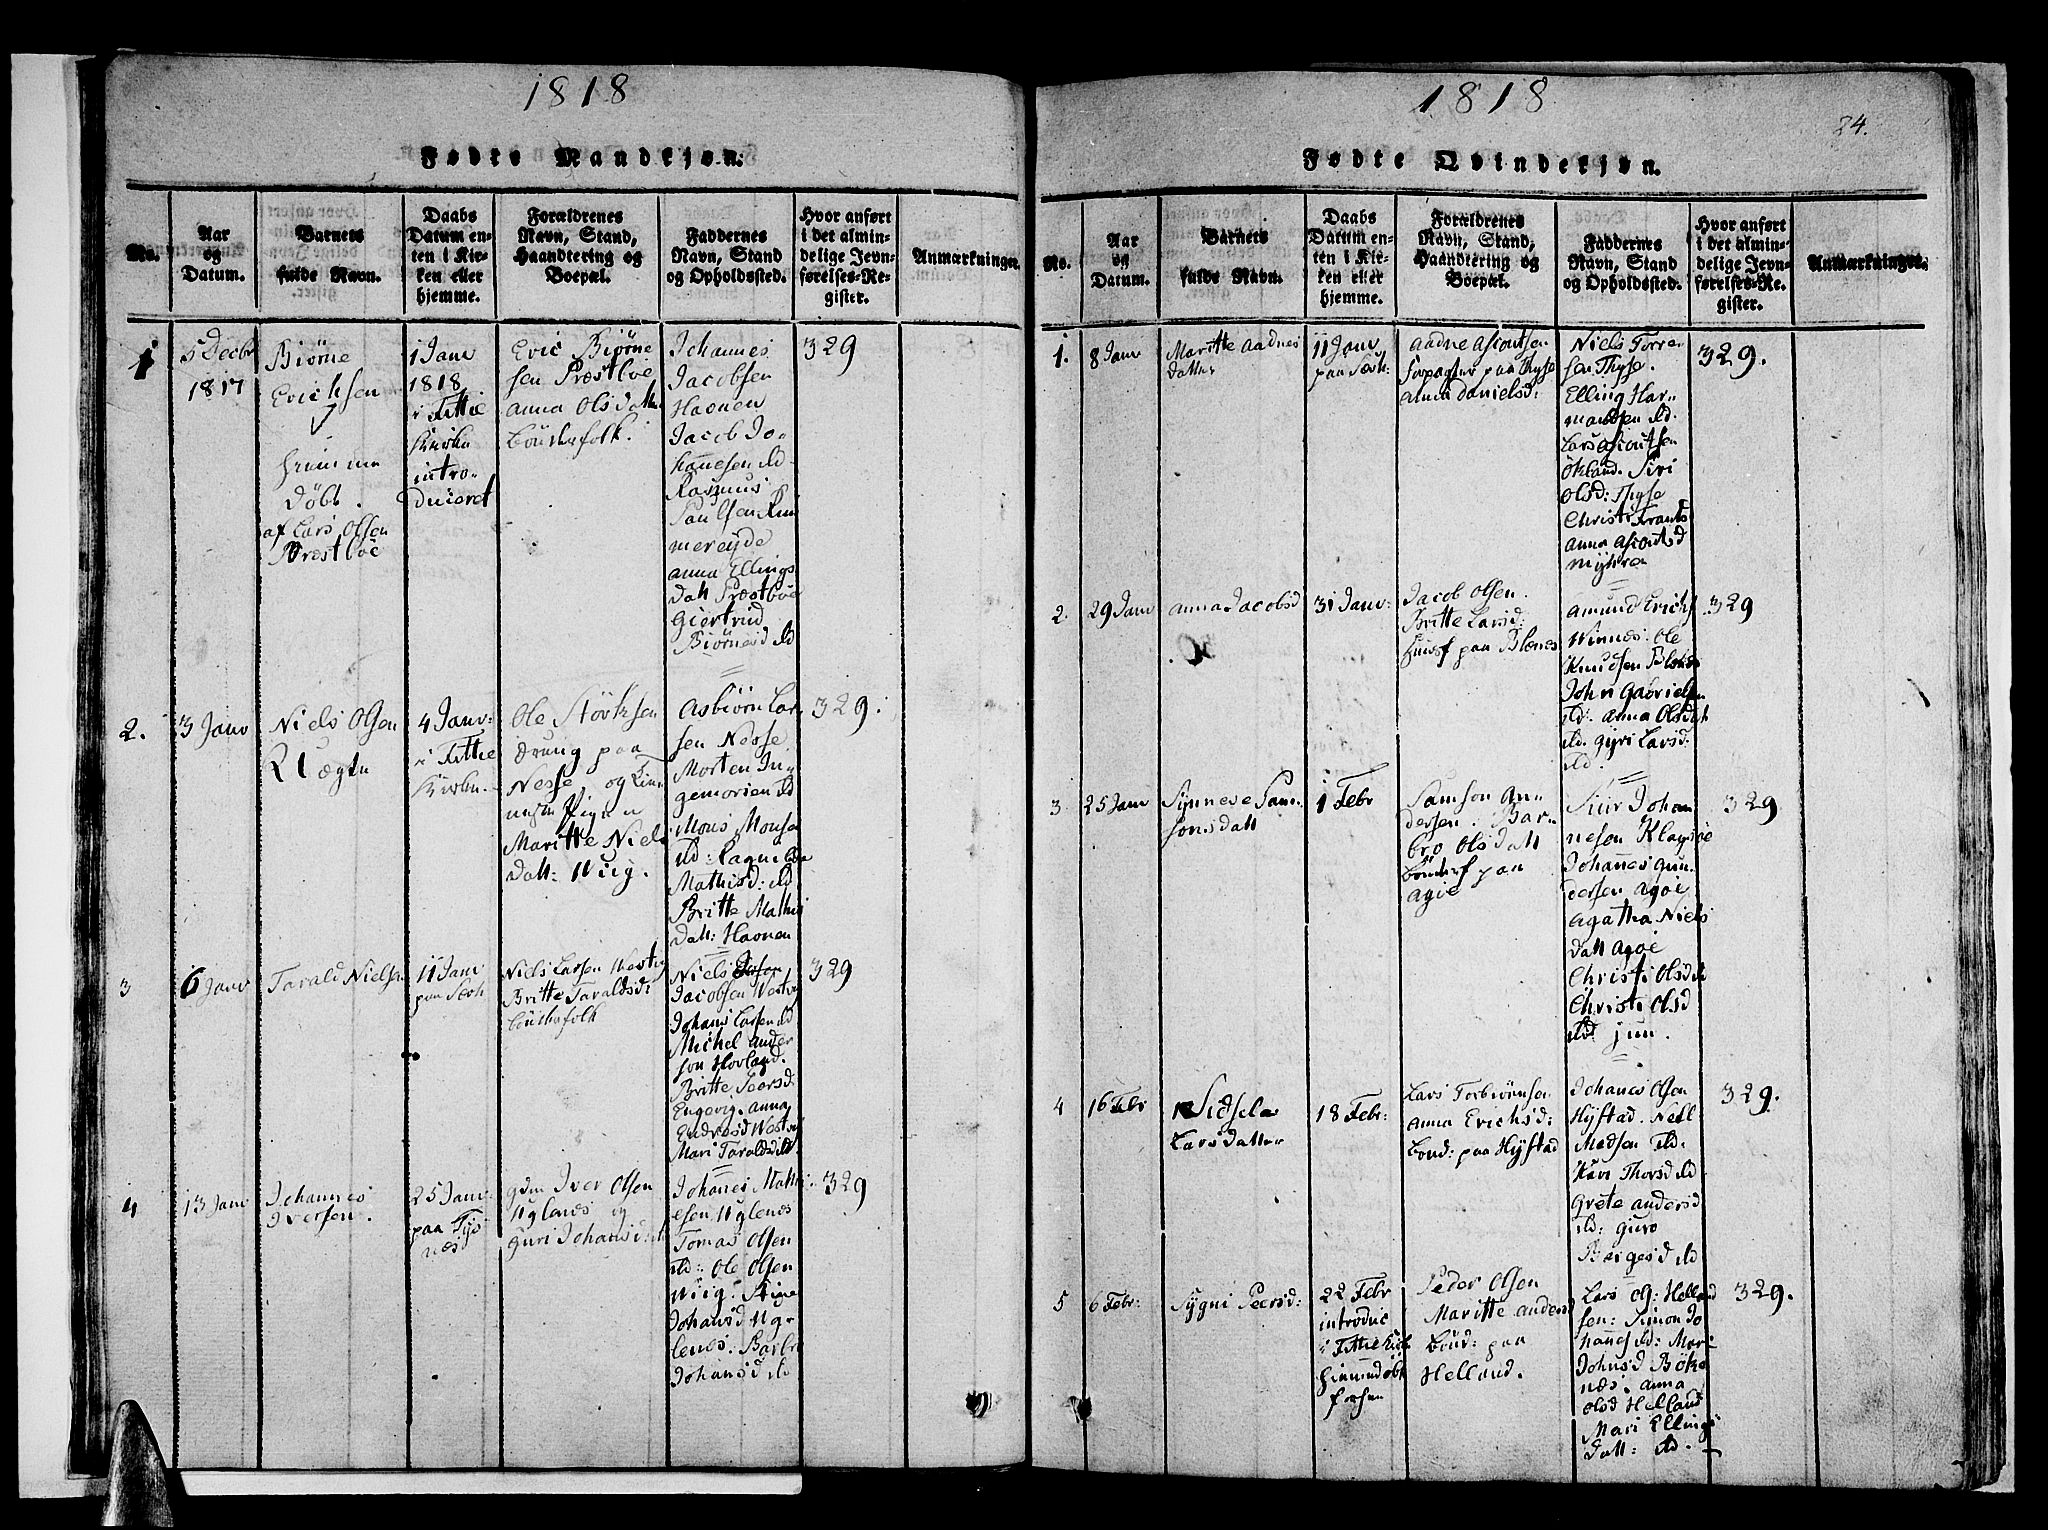 1818
Fødte Mandkjøn.
No.
Aar
og
Datum.
Barnets
fulde Navn.
Daabs
Datum en-
ten i Kir-
ken eller
hjemme.
Forældrenes
Navn, Stand,
Haandtering og
Boepæl.
Faddernes
Navn, Stand
og Opholdssted.
Hvor anført
i det almin-
delige Jevn-
førelses-Re-
gister.
Anmærkninger.
1
5 Decbr
1817
Biørne
Erichsen
hiemme
Døbt.
af Lars Olsen
Præstbøe
1 Janv
1818
i Fittie
Kirke
intro-
duceret
Eric Biørne
sen Præstbøe
Anna Olsdatter
Bønderfolk.
Johannes
Jacobsen
Haonen
Jacob Jo-
hannesen ibd
Rasmus
Paulsen
Anna Ellings
Datt Præstbøe
Giertrud
Biørnesd ibd
329
2.
3 Janv
Niels Olsen
Uægte
4 Janv:
i Fittie
Kirke.
Ole Størksen
paa
Nesse og
Pigen
Maritte Niels
Datt: Wiig.
Asbiørn Lar
sen Nesse
Morten In-
gemorsen ibd
Mons Monsen
ibd: Ragnilda
Mathisd: ibd
Britte Mathis
Datt: Haonen
329.
3
6 Janv
Tarald Nielsen
11 Janv
Niels Larsen
Britte Taraldsd:
Bønderfolk
Niels
Jacobsen
Johans Larsen ibd
Michel Ander
sen Hovland.
Britte Peersd:
Engevig. Anna
Endresd
Mari Taraldsd ibd
329
4
13 Janv
Johannes
Iversen.
25 Janv:
paa Tys
nes
gdm Iver Olsen
Uglenes og
Guri Johansd: ibd
Johanes Mathi
esen Uglenes
Tomas Olsen
ibd: Ole Olsen
Wiig.
Johansd Ug-
lenes. Barbro
Johansd ibd
329
1818
24.
Fødte Qvindekjøn.
No.
Aar
og
Datum.
Barnets
fulde Navn.
Daabs
Datum en-
ten i Kir-
ken eller
hjemme.
Forældrenes
Navn, Stand,
Haandtering og
Boepæl.
Faddernes
Navn, Stand
og Opholdssted.
Hvor anført
i det almin-
delige Jevn-
førelses-Re-
gister.
Anmærkninger.
1.
8 Janv
Maritte Aadnes
datter
11 Janv
Aadne Asioutsen
Forpagter paa Thyse
Anna Danielsd:
Niels Torre
sen Thyse.
Elling Har-
mandsen ibd.
Lars Asioutsen
Økland. Siri
Olsd: Thyse
Christi
Anna Asioutsd
329.
2.
29 Janv
Anna Jacobsd
31 Janv:
Jacob Olsen.
Britte Larsd:
Huusf paa Blænes
Amund Erichs
Winnes. Ole
Knudsen Blænes
John Gabrielsen
ibd: Anna Olsdatt
ibd. Gyri Larsd:
ibd.
329
3
25 Janv
Synneve Sam-
sonsdatt
1 Febr
Samson An-
dersen. Bar-
bro Olsdatt
Bønderf paa
Agøe
Siur Johan
nesen
Johannes Gun-
dersen Agøe
Agatha Niels
datt Agøe
Christi Olsd ibd
Christi Olsd
ibd jun.
329
4
16 Febr
Sidsela
Larsdatter
18 Febr:
Lars Torbiørnsen
Anna Erichsd:
Bønd: paa Hystad
Johanes Olsen
Hystad. Nell
Madsen ibd.
Kari Thorsd ibd
Grete Andersd
ibd: Guro
Børgesd ibd
329.
5
6 Febr:
Sygni Peersd:
22 Febr
introduc
i Fittie Kirk
hiemmedøbt
forhen
Peder Olsen
Maritte Andersd
Bønd: paa
Helland.
Lars Helland
Simon Jo
hannes ibd: Mari
Johnsd Bøke
næs. Anna
Olsd Helland
Mari Ellings
Datt: ibd.
329.